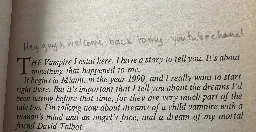 Hey guys, welcome back to my youtube channel
THE Vampire Lestat here. I have a story to tell you. It's about
something that happened to me.
It begins in Miami, in the year 1990, and I really want to start
right there. But it's important that I tell you about the dreams I'd
been having before that time, for they are very much part of the
tale too. I'm talking now about dreams of a child vampire with a
woman's mind and an angel's face, and a dream of my mortal
friend David Talbot.